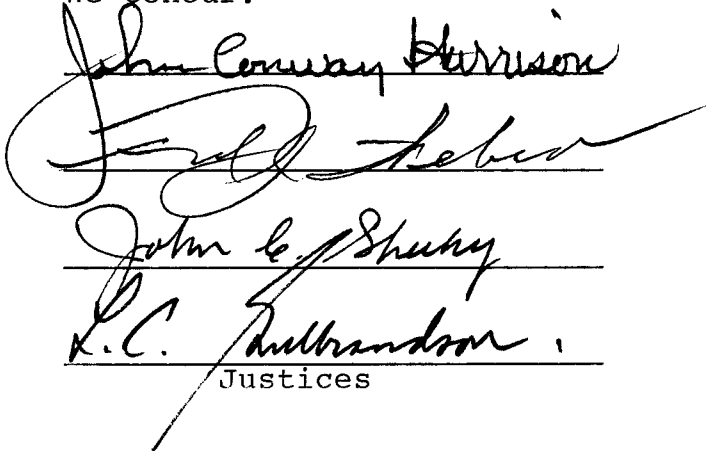 We concur:
John Conway Harrison
Fred J. Weber
John C. Sheehy
L.C. Gulbrandson.
Justices